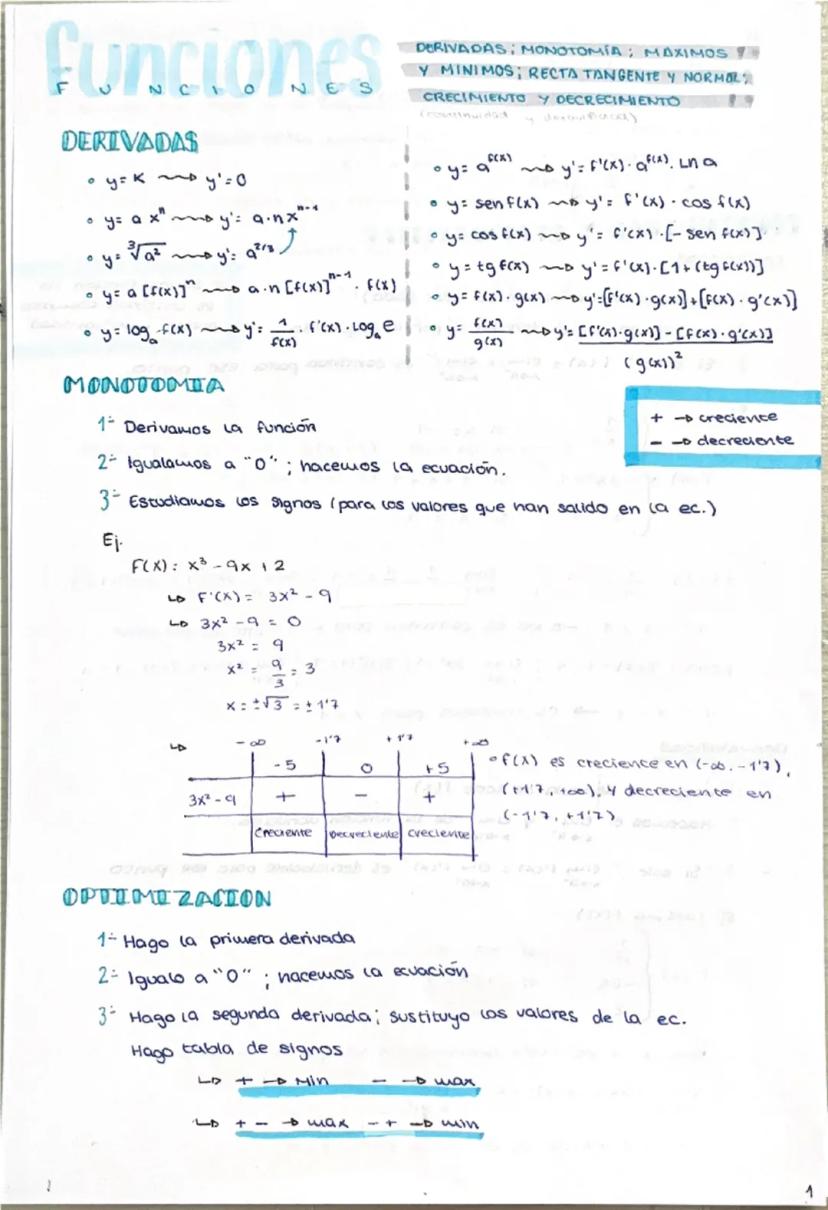 funciones
FUNCIONES
DERIVADAS; MONOTOMÍA; MAXIMOS
Y MINIMOS; RECTA TANGENTE Y NORMAL;
CRECIMIENTO Y DECRECIMIENTO
(continuidad y derivabilidad)
DERIVADAS
• y= K ⟿ y'=0
• y= a xⁿ ⟿ y'= a·n xⁿ⁻¹
• y= ∛a² ⟿ y'= a^(2/3)
• y= a [f(x)]ⁿ ⟿ a·n [f(x)]ⁿ⁻¹ · f(x)
• y= logₐ f(x) ⟿ y'= 1/f(x) · f'(x) · Logₐ e
• y= a^f(x) ⟿ y'= f'(x) · a^f(x) · Ln a
• y= sen f(x) ⟿ y'= f'(x) · cos f(x)
• y= cos f(x) ⟿ y'= f'(x) · [- sen f(x)]
• y= tg f(x) ⟿ y'= f'(x) · [1+(tg f(x))]
• y= f(x) · g(x) ⟿ y'=[f'(x) · g(x)]+[f(x) · g'(x)]
• y= f(x)/g(x) ⟿ y'= [f'(x)·g(x)] - [f(x) · g'(x)]/(g(x))²
MONOTOMIA
+ → creciente
- → decreciente
1- Derivamos la función
2- Igualamos a "0"; hacemos la ecuación.
3- Estudiamos los signos (para los valores que han salido en la ec.)
Ej.
F(x): x³ - 9x + 2
↳ F'(x) = 3x² - 9
↳ 3x² - 9 = 0
3x² = 9
x² = 9/3 = 3
x = ±√3 = ± 1'7
↳ -∞ -1'7 +1'7 +∞
-5 0 +5
3x² - 9 + - +
Creciente Decreciente creciente
• f(x) es creciente en (-∞, -1'7),
(+1'7, +∞), y decreciente en
(-1'7, +1'7)
OPTIMIZACION
1- Hago la primera derivada
2- Igualo a "0"; hacemos la ecuación
3- Hago la segunda derivada; sustituyo los valores de la ec.
Hago tabla de signos
↳ + → Min - → max
↳ + - → max - + → min
1